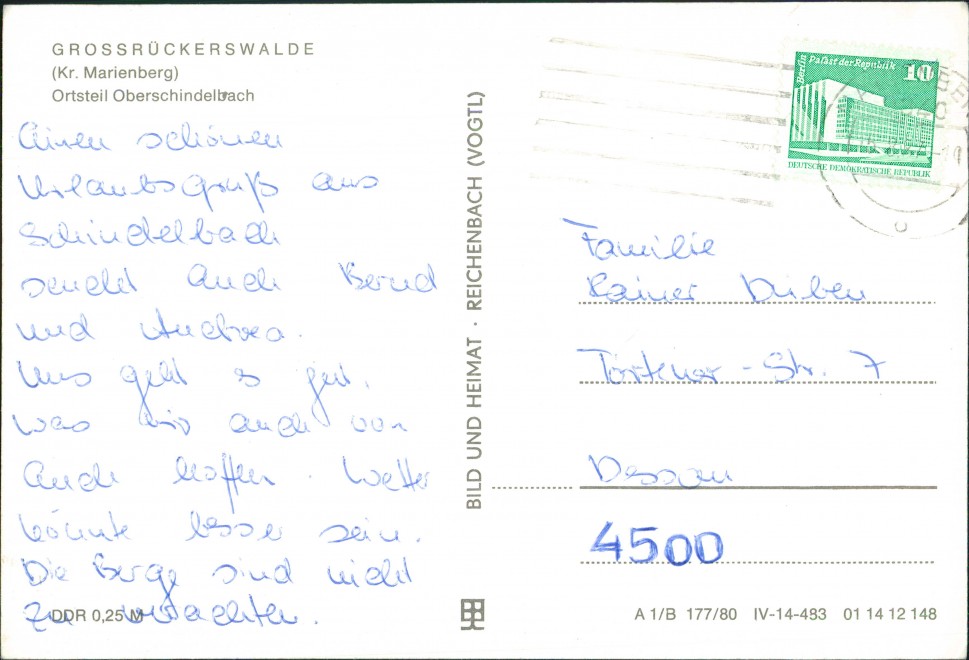 GROSSRÜCKERSWALDE
(Kr. Marienberg)
Ortsteil Oberschindelbach
Einen schönen
Urlaubsgruß aus
Schindelbach
sendet Euch Bernd
und Andrea.
Uns geht es gut,
was wir auch von
Euch hoffen. Wetter
könnte besser sein.
Die Berge sind nicht
zu verachten.
DDR 0,25 M
BILD UND HEIMAT · REICHENBACH (VOGTL)
Berlin Palast der Republik 10
DEUTSCHE DEMOKRATISCHE REPUBLIK
Familie
Rainer Düben
Törtener-Str. 7
Dessau
4500
A 1/B 177/80 IV-14-483 01 14 12 148